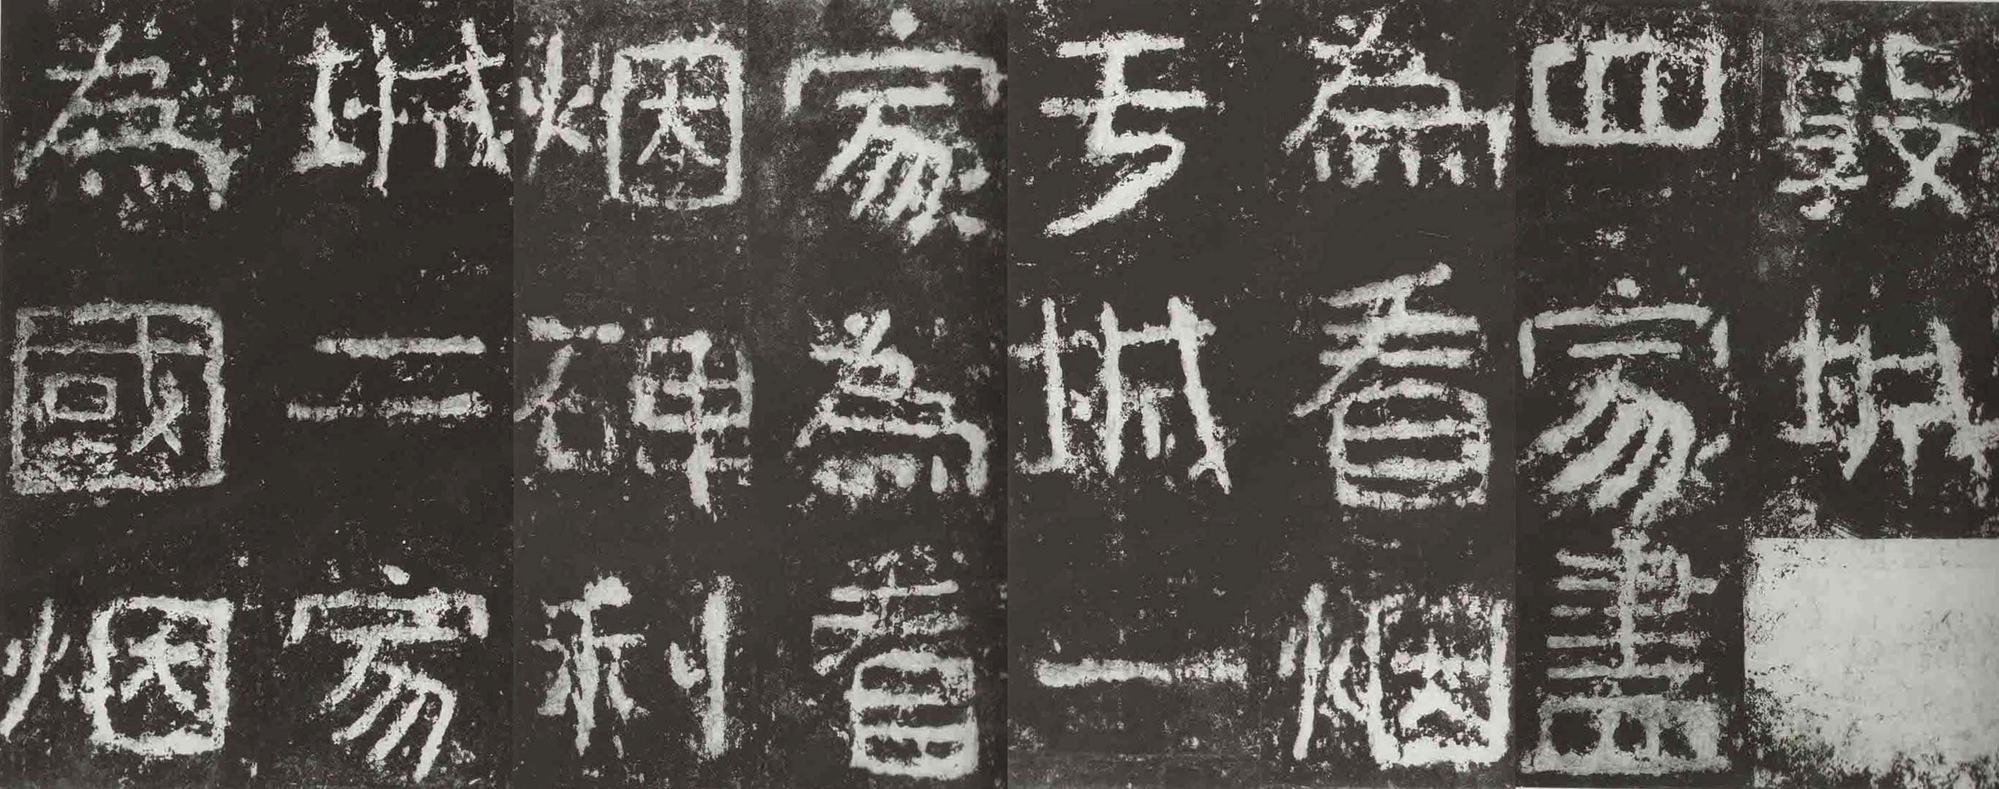 敦城
四家盡
為看烟
亐城一
家為看
烟碑利
城二家
為國烟